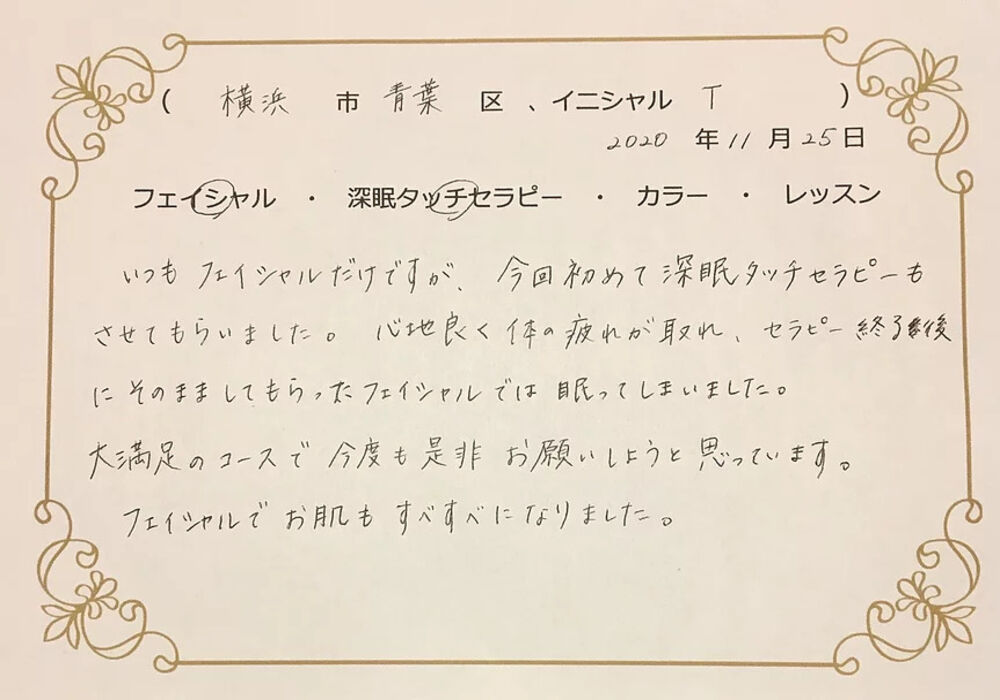 ( 横浜 市 青葉 区 、イニシャル T )
2020 年 11 月 25 日
フェイシャル ・ 深眠タッチセラピー ・ カラー ・ レッスン
いつも フェイシャルだけですが、今回初めて深眠タッチセラピーも
させてもらいました。 心地良く体の疲れが取れ、セラピー終了後
にそのまましてもらったフェイシャルでは眠ってしまいました。
大満足のコースで今度も是非お願いしようと思っています。
フェイシャルでお肌もすべすべになりました。